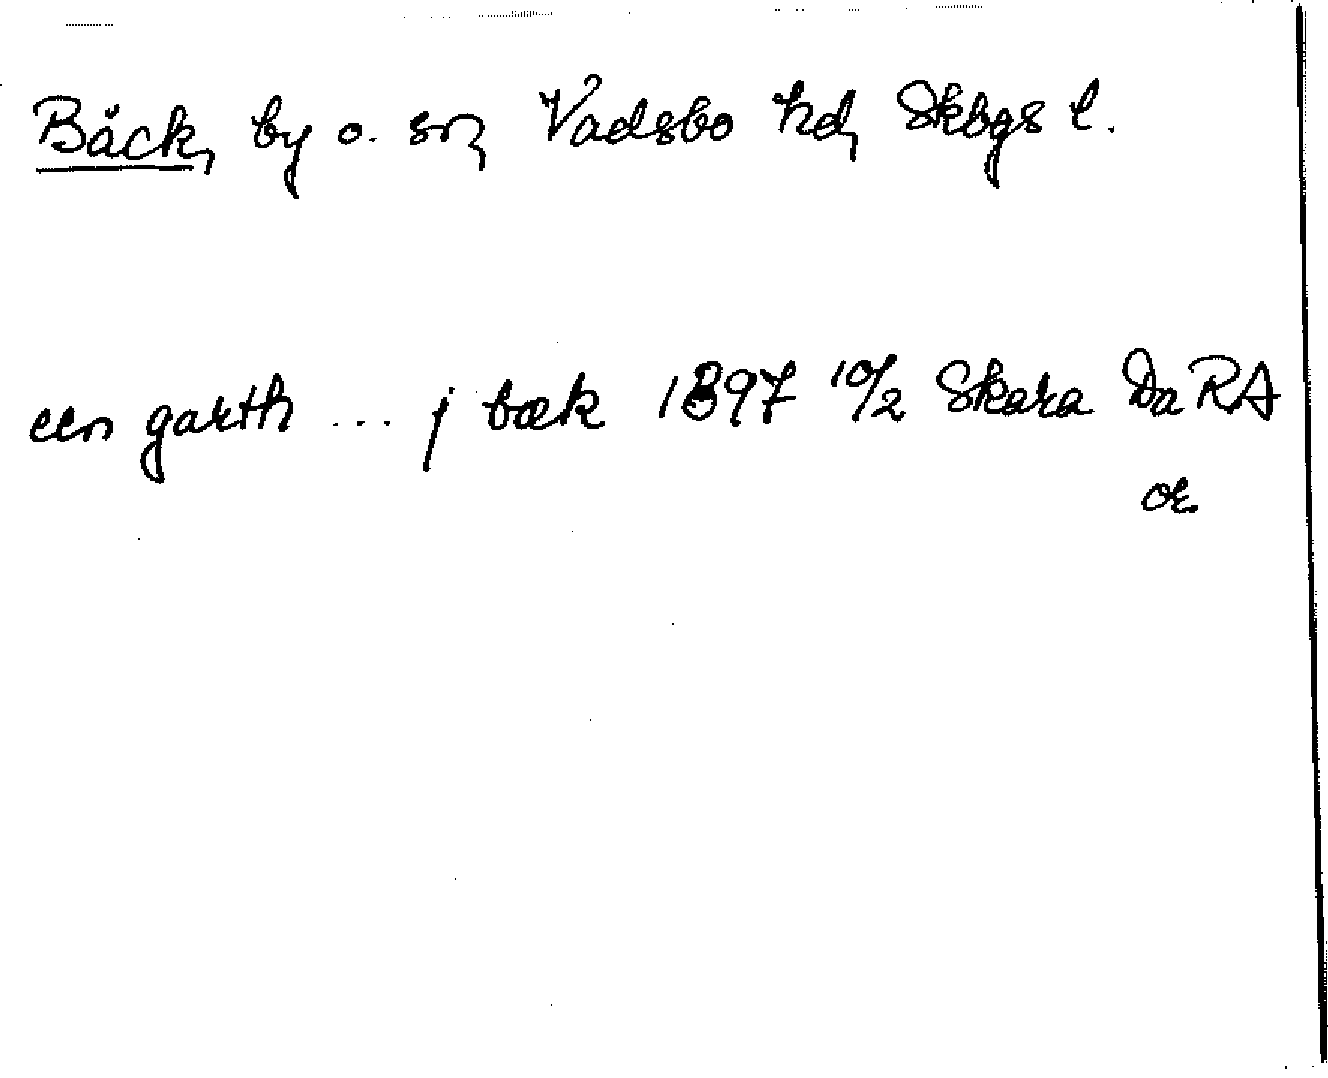 Bäck, by o. sn, Vadsbo hd, Skbgs l.
een garth ... j bæk 1397 10/2 Skara Da RA
or.